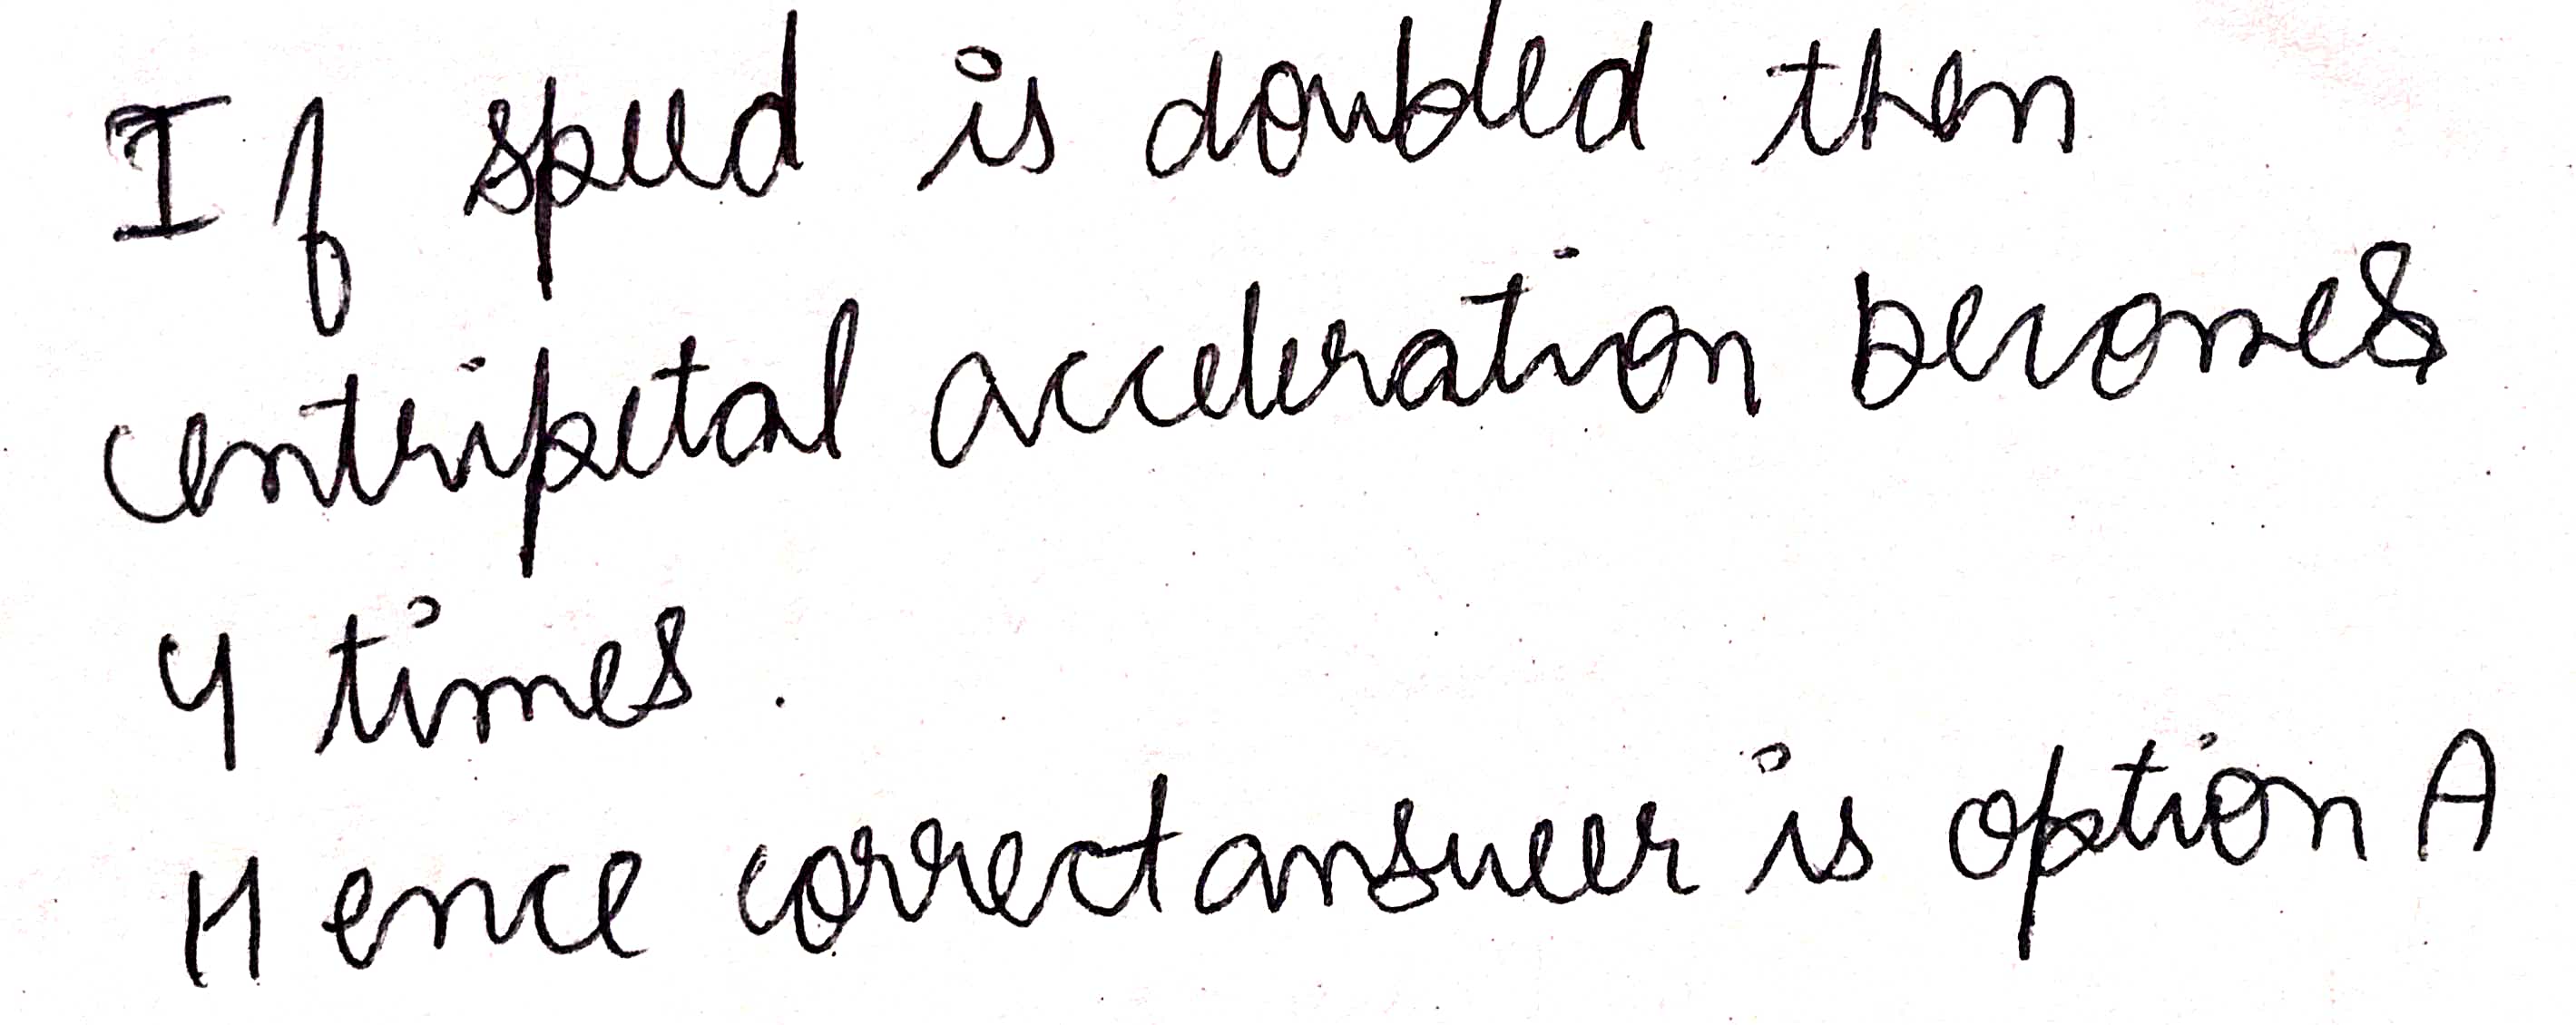 If speed is doubled then
centripetal acceleration becomes
4 times.
Hence correct answer is option A